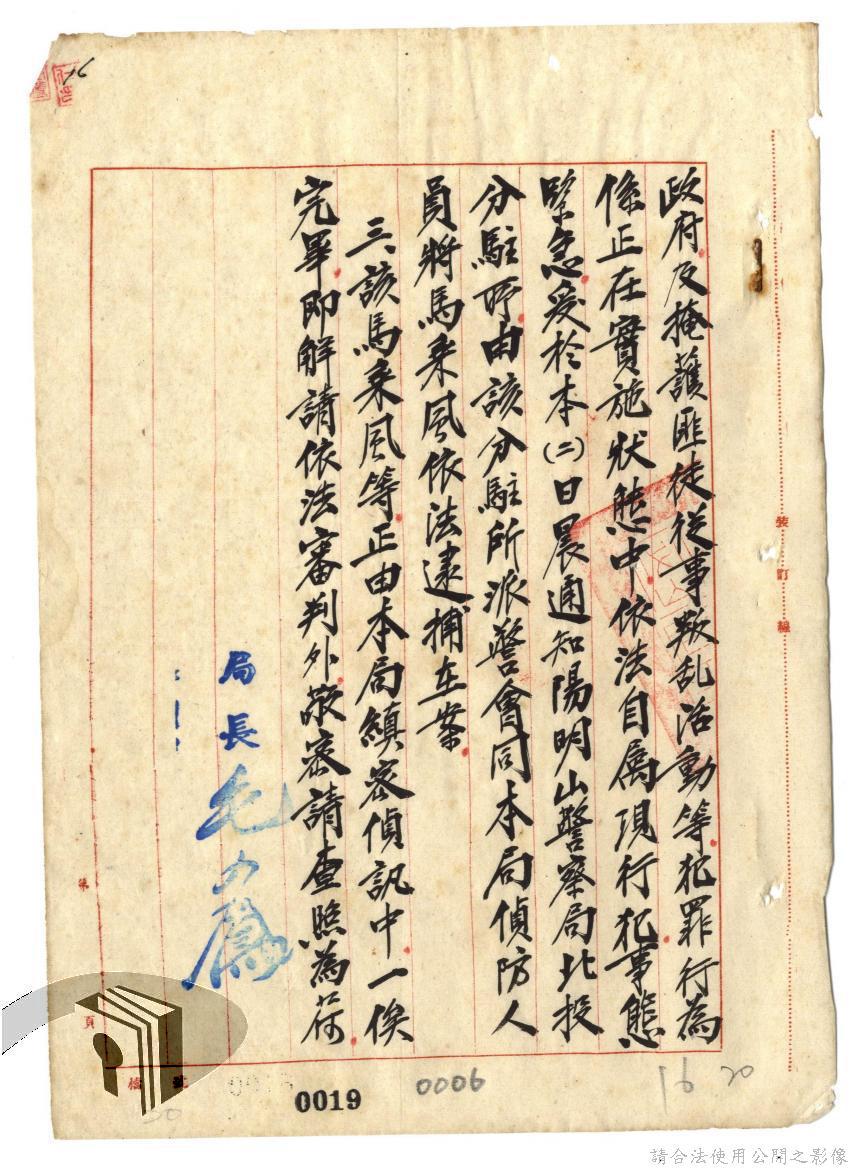 政府及掩護匪徒從事叛乱活動等犯罪行為
係正在實施狀態中依法自属現行犯事態
緊急爰於本(二)日晨通知陽明山警察局北投
分駐所由該分駐所派警會同本局偵防人
員將馬乘風依法逮捕在案
三、該馬乘風等正由本局縝密偵訊中一俟
完畢即解請依法審判外敬密請查照為荷
局長
裝訂線
第
頁
檔
號
0019
0006
16
20
請合法使用公開之影像